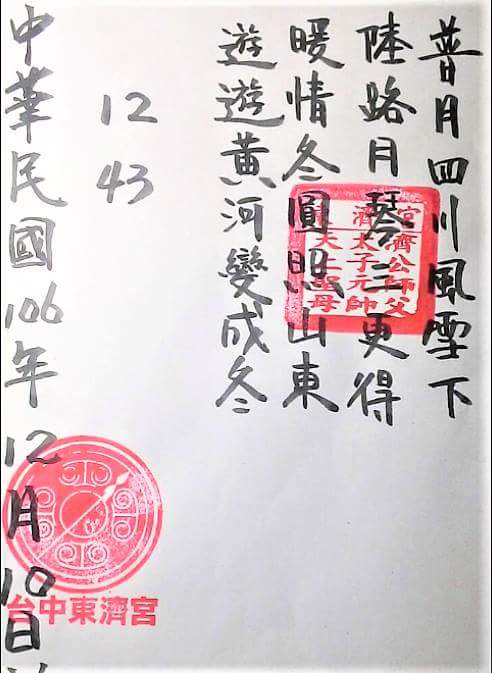 昔月四川風雪下
陸路月琴三更得
暖情冬圓照山東
遊遊黃河變成冬
東濟宮
濟公師父
太子元帥
天上聖母
12
43
中華民國106年12月10日
台中東濟宮